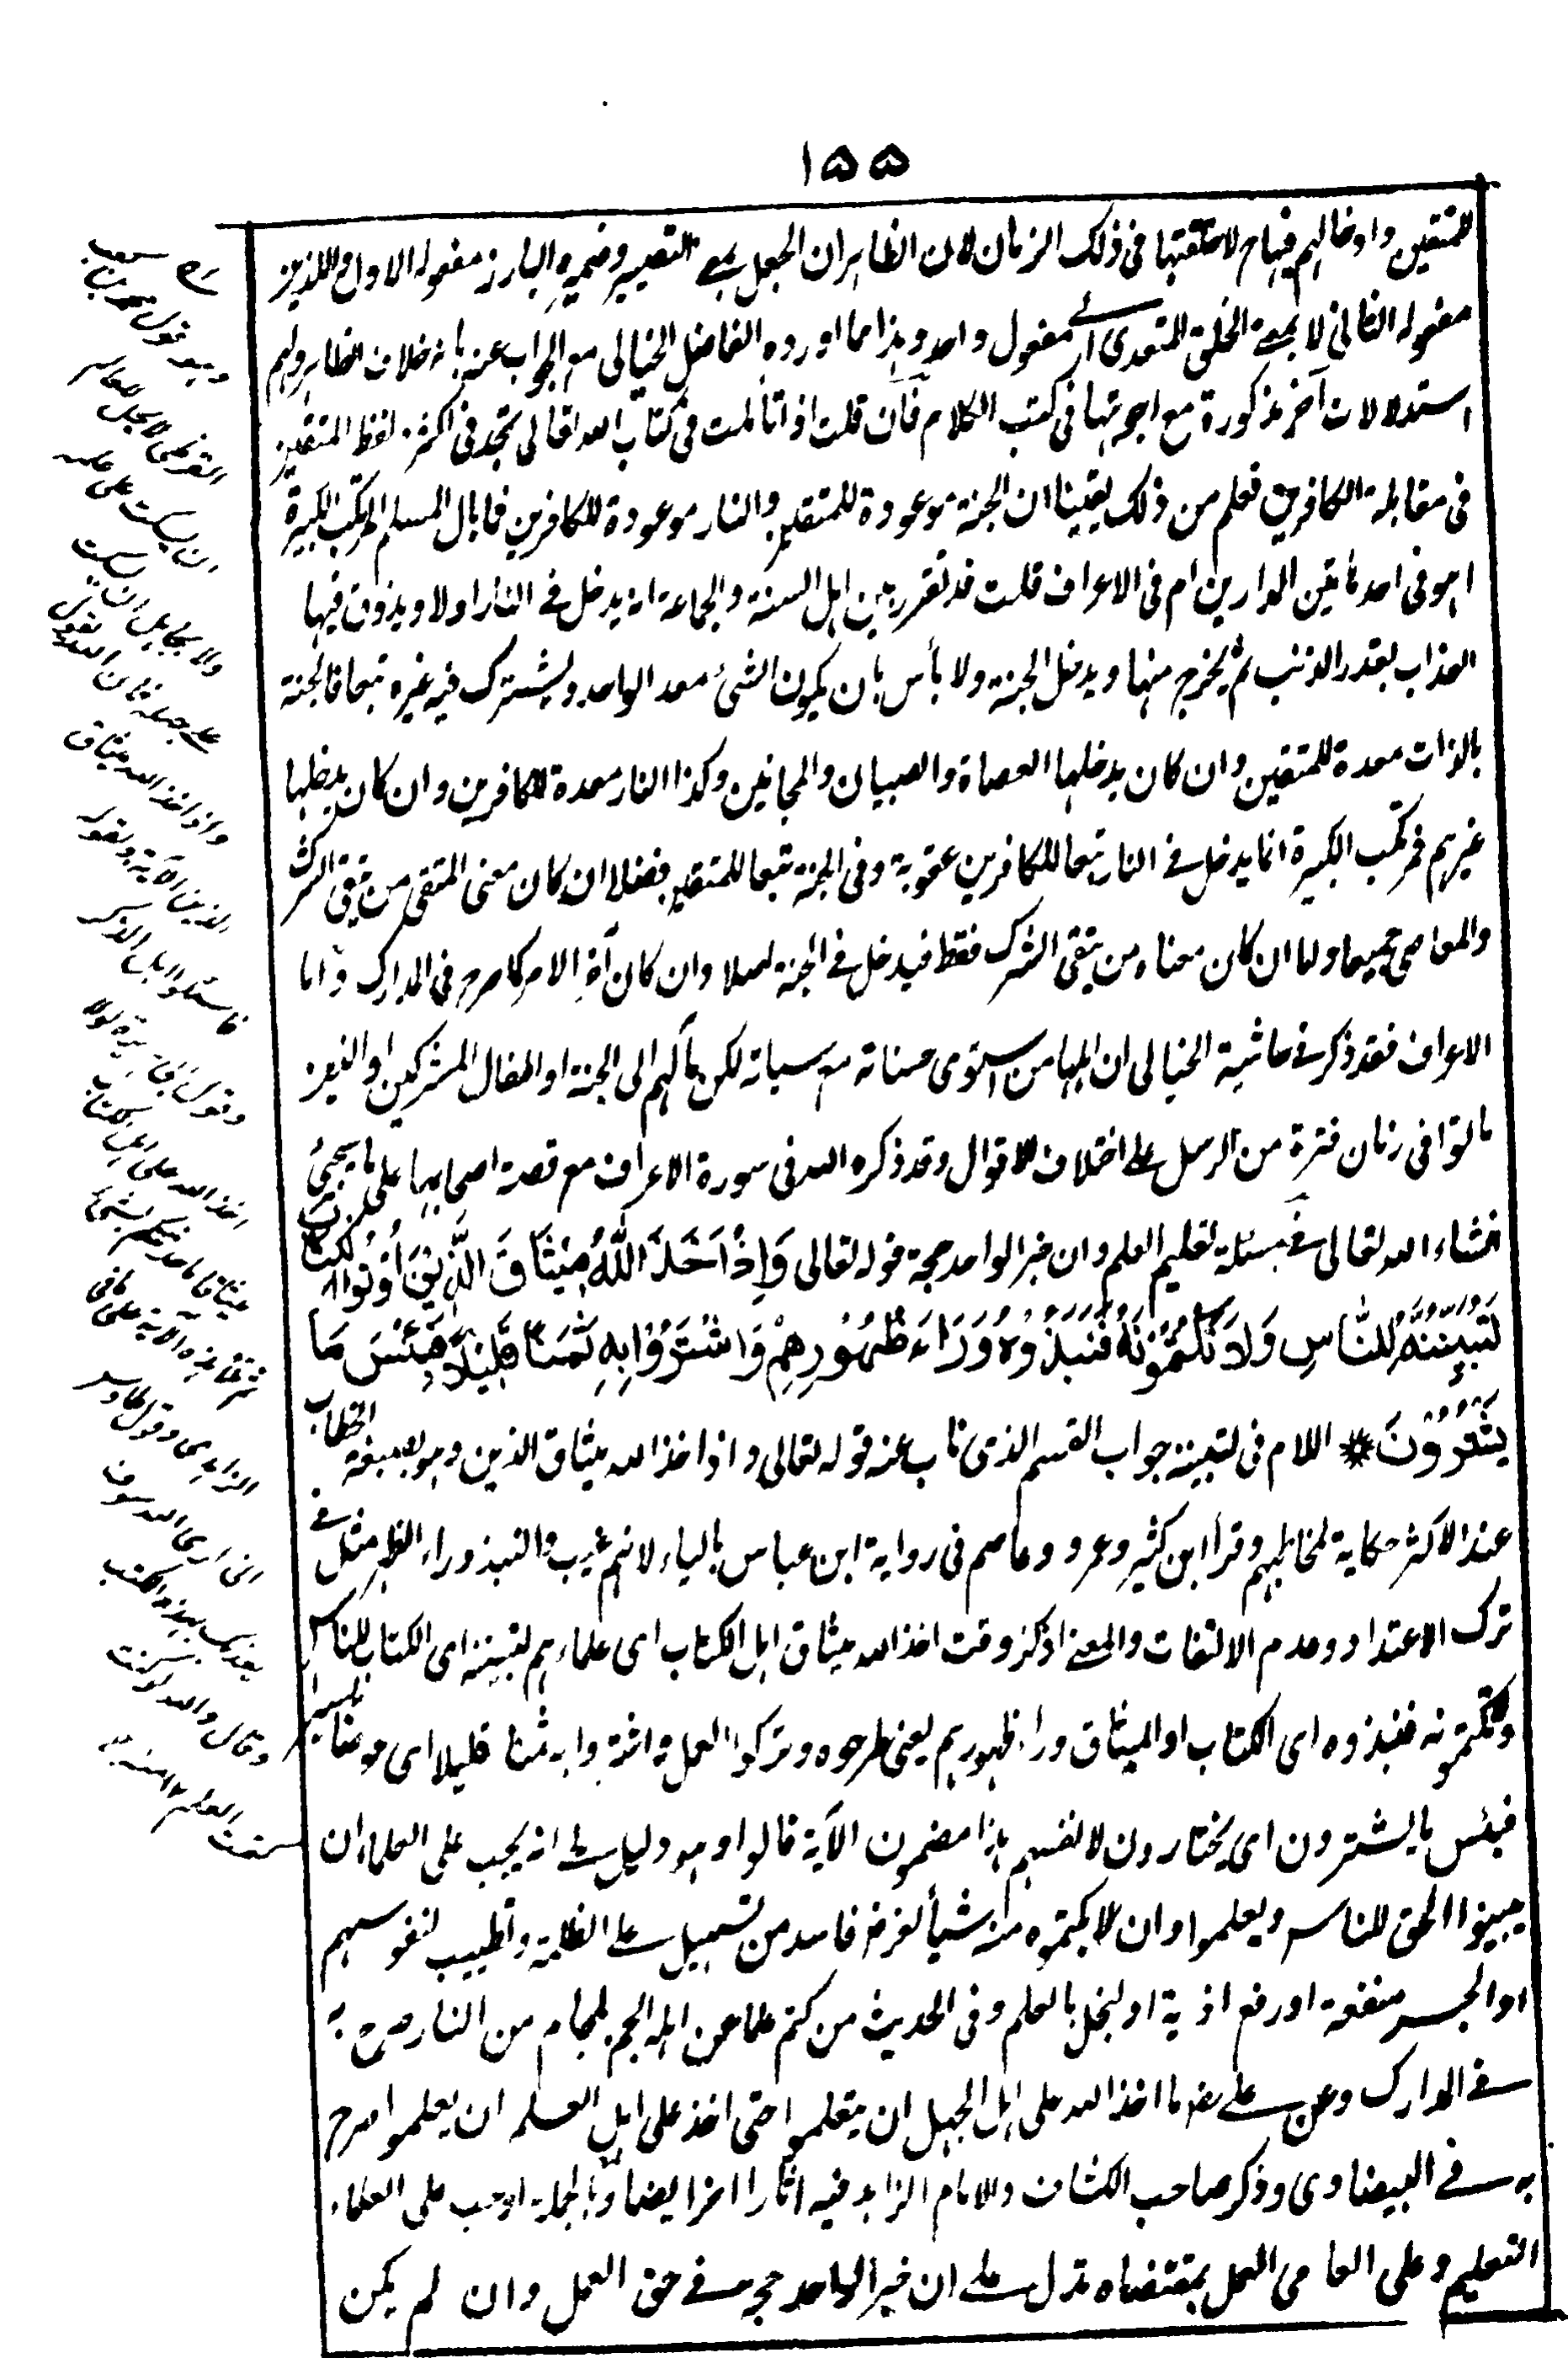 ١٥٥
للمتقين وادخالهم فيها لا خلقتها فى ذلك الزمان لان الظاهر ان الجعل بمعنى التصيير وضميره البارز مفعوله الاول وللذين
مفعوله الثانى لا بمعنى الخلق المتعدى الى مفعول واحد وهذا مما اورده الفاضل الخيالى مع الجواب عنه بانه خلاف الظاهر ولهم
استدلالات آخر مذكورة مع اجوبتها فى كتب الكلام فان قلت اذا تأملت فى كتاب الله تعالى تجد فى اكثره لفظ المتقين
فى مقابلة الكافرين فعلم من ذلك يقينا ان الجنة موعودة للمتقين والنار موعودة للكافرين فما بال المسلم المرتكب الكبيرة
اهو فى احد هاتين الدارين ام فى الاعراف قلت قد تقرر بين اهل السنة والجماعة انه يدخل فى النار اولا ويذوق فيها
العذاب بقدر الذنب ثم يخرج منها ويدخل الجنة ولا بأس بان يكون الشئ معد الواحد ويشترك فيه غيره تبعا فالجنة
بالذات معدة للمتقين وان كان يدخلها العصاة والصبيان والمجانين وكذا النار معدة للكافرين وان كان يدخلها
غيرهم فمرتكب الكبيرة انما يدخل فى النار تبعا للكافرين عقوبة وفى الجنة تبعا للمتقين فضلا ان كان معنى المتقى من يتقى الشرك
والمعاصى جميعا واما ان كان معناه من يتقى الشرك فقط فيدخل فى الجنة اصلا وان كان آخر الامر كما صرح فى المدارك واما
الاعراف فقد ذكر فى حاشية الخيالى ان اهلها من استوى حسناته مع سياته لكن مآلهم الى الجنة او اطفال المشركين او الذين
ماتوا فى زمان فترة من الرسل على اختلاف الاقوال وقد ذكره الله فى سورة الاعراف مع قصة اصحابها على ما سيجئ
انشاء الله تعالى فى مسئلة تعليم العلم وان خبر الواحد حجة قوله تعالى وَاِذْ اَخَذَ اللّٰهُ مِيْثَاقَ الَّذِيْنَ اُوْتُوا الْكِتَابَ
لَتُبَيِّنُنَّهٗ لِلنَّاسِ وَلَا تَكْتُمُوْنَهٗ فَنَبَذُوْهُ وَرَاءَ ظُهُوْرِهِمْ وَاشْتَرَوْا بِهٖ ثَمَنًا قَلِيْلًا فَبِئْسَ مَا
يَشْتَرُوْنَ اللام فى لتبيننه جواب القسم الذى ناب عنه قوله تعالى واذ اخذ الله ميثاق الذين وهو بصيغة الخطاب
عند الاكثر حكاية لمخاطبتهم وقرأ ابن كثير وعمرو وعاصم فى رواية ابن عباس بالياء لانهم غيب والنبذ وراء الظهر مثل فى
ترك الاعتداد وعدم الالتفات والمعنى اذكر وقت اخذ الله ميثاق اهل الكتاب اى علماءهم لتبيننه اى الكتاب للناس
ولا تكتمونه فنبذوه اى الكتاب او الميثاق وراء ظهورهم يعنى طرحوه وتركوا العمل به اشتروا به ثمنا قليلا اى عوضا يسيرا
فبئس ما يشترون اى يختارون لانفسهم هذا مضمون الآية قالوا وهو دليل على انه يجب على العلماء ان
يبينوا الحق للناس ويعلموا وان لا يكتموه منه شيأ لغرض فاسد من تسهيل على الظلمة وتطييب لنفوسهم
او الجر منفعة او رفع اذية او لبخل بالعلم وفى الحديث من كتم علما عن اهله الجم بلجام من النار صرح به
فى المدارك وعن على رضـ ما اخذ الله على اهل الجهل ان يتعلموا حتى اخذ على اهل العلم ان يعلموا صرح
به فى البيضاوى وذكر صاحب الكشاف والامام الزاهد فيه اثارا اخر ايضا وبالجملة اوجب على العلماء
التعليم وعلى العامى العمل بمقتضاه تدل على ان خبر الواحد حجة فى حق العمل وان لم يكن
وهو قول محمد بن كعب
القرظى لا يحل للعالم
ان يسكت على علمه
ولا بجاهل ان يسكت
على جهله فان الله يقول
واذ اخذ الله ميثاق
الذين الآية وبقوله
فاسئلوا اهل الذكر
وقول ابى هريرة لولا
اخذ الله على اهل الكتاب
ميثاقا ما حدثتكم بشئ
ثم قرأ هذه الآية على ما فى
الزاهدى وقول طاوس
انى ارى الله سوف
يعذبك بهذه الكتب
وقال والله لو كنت